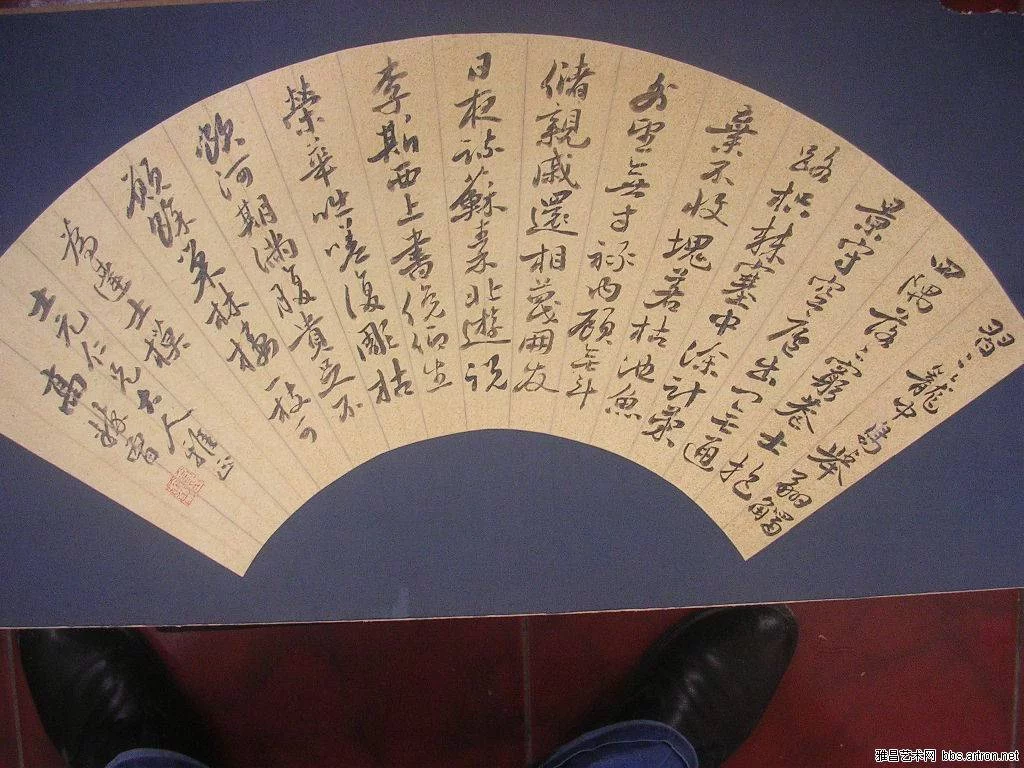 習〻籠中鳥舉翮觸
四隅落〻窮巷士抱
景守空廬出門無通
路枳棘塞中涂計策
棄不收塊若枯池魚
外望無寸祿內顧無斗
儲親戚還相蔑朋友
日夜疏蘇秦北遊說
李斯西上書俛仰生
榮華咄嗟復彫枯
飲河期滿腹貴足不
願餘巢林棲一枝可
為達士模
士元仁兄大人雅正
高
雅昌艺术网 bbs.artron.net